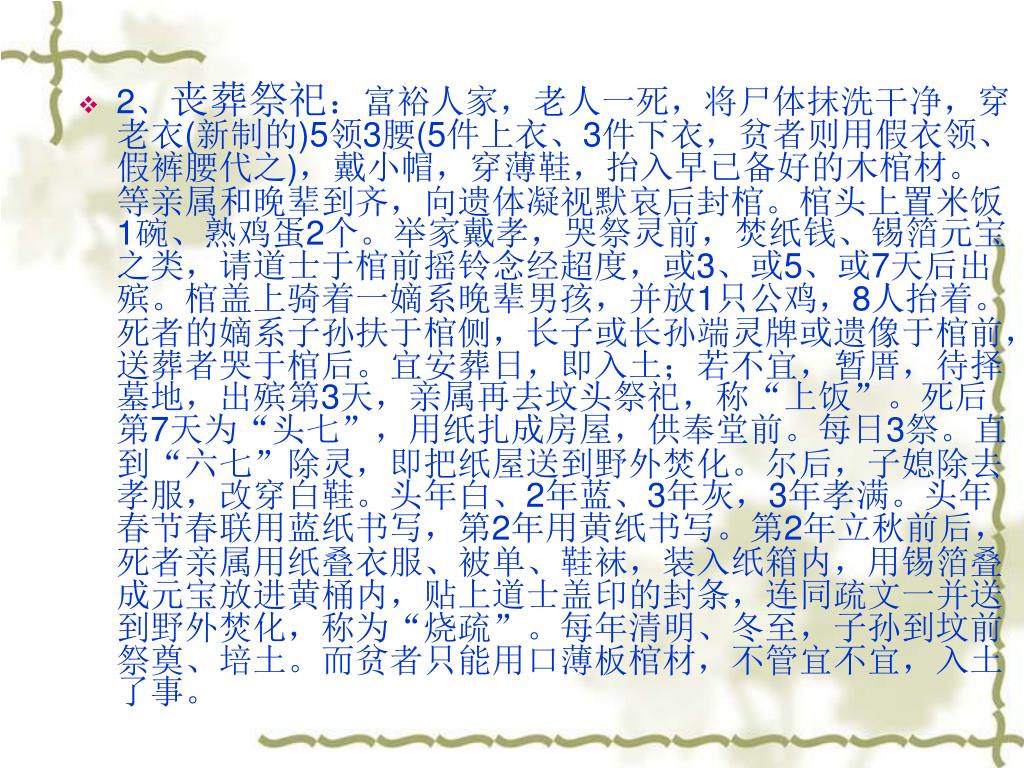 2、丧葬祭祀：富裕人家，老人一死，将尸体抹洗干净，穿
老衣(新制的)5领3腰(5件上衣、3件下衣，贫者则用假衣领、
假裤腰代之)，戴小帽，穿薄鞋，抬入早已备好的木棺材。
等亲属和晚辈到齐，向遗体凝视默哀后封棺。棺头上置米饭
1碗、熟鸡蛋2个。举家戴孝，哭祭灵前，焚纸钱、锡箔元宝
之类，请道士于棺前摇铃念经超度，或3、或5、或7天后出
殡。棺盖上骑着一嫡系晚辈男孩，并放1只公鸡，8人抬着。
死者的嫡系子孙扶于棺侧，长子或长孙端灵牌或遗像于棺前，
送葬者哭于棺后。宜安葬日，即入土；若不宜，暂厝，待择
墓地，出殡第3天，亲属再去坟头祭祀，称“上饭”。死后
第7天为“头七”，用纸扎成房屋，供奉堂前。每日3祭。直
到“六七”除灵，即把纸屋送到野外焚化。尔后，子媳除去
孝服，改穿白鞋。头年白、2年蓝、3年灰，3年孝满。头年
春节春联用蓝纸书写，第2年用黄纸书写。第2年立秋前后，
死者亲属用纸叠衣服、被单、鞋袜，装入纸箱内，用锡箔叠
成元宝放进黄桶内，贴上道士盖印的封条，连同疏文一并送
到野外焚化，称为“烧疏”。每年清明、冬至，子孙到坟前
祭奠、培土。而贫者只能用口薄板棺材，不管宜不宜，入土
了事。